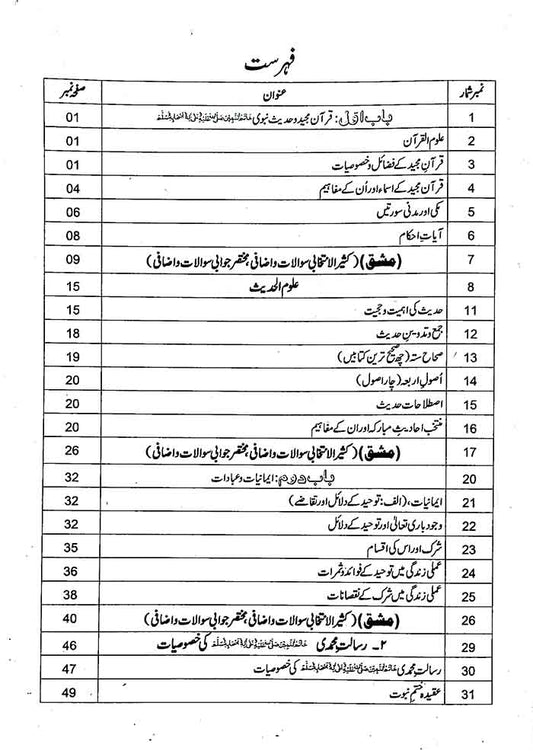 فہرست
نمبر شمار عنوان صفحہ نمبر
1 باب اوّل: قرآن مجید و حدیث نبوی خاتم النبیین صلی اللہ علیہ وعلیٰ آلہ واصحابہ وسلم 01
2 علوم القرآن 01
3 قرآنِ مجید کے فضائل و خصوصیات 01
4 قرآن مجید کے اسماء اور اُن کے مفاہیم 04
5 مکی اور مدنی سورتیں 06
6 آیاتِ احکام 08
7 (مشق) (کثیر الانتخابی سوالات و اضافی، مختصر جوابی سوالات و اضافی) 09
8 علوم الحدیث 15
11 حدیث کی اہمیت و حجیت 15
12 جمع و تدوینِ حدیث 18
13 صحاح ستہ (چھ صحیح ترین کتابیں) 19
14 اُصولِ اربعہ (چار اصول) 20
15 اصطلاحات حدیث 20
16 منتخب احادیثِ مبارکہ اور ان کے مفاہیم 20
17 (مشق) (کثیر الانتخابی سوالات و اضافی، مختصر جوابی سوالات و اضافی) 26
20 باب دوم: ایمانیات و عبادات 32
21 ایمانیات، (الف: توحید کے دلائل اور تقاضے) 32
22 وجود باری تعالیٰ اور توحید کے دلائل 32
23 شرک اور اس کی اقسام 35
24 عملی زندگی میں توحید کے فوائد و ثمرات 36
25 عملی زندگی میں شرک کے نقصانات 38
26 (مشق) (کثیر الانتخابی سوالات و اضافی، مختصر جوابی سوالات و اضافی) 40
29 ۲۔ رسالتِ محمدی خاتم النبیین صلی اللہ علیہ وعلیٰ آلہ واصحابہ وسلم کی خصوصیات 46
30 رسالتِ محمدی خاتم النبیین صلی اللہ علیہ وعلیٰ آلہ واصحابہ وسلم کی خصوصیات 47
31 عقیدہ ختمِ نبوت 49